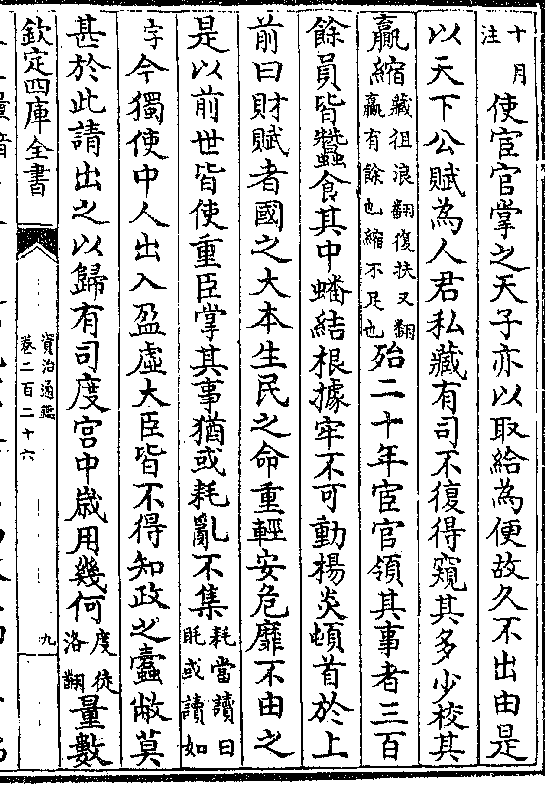 十月注使宦官掌之天子亦以取給為便故久不出由是
以天下公賦為人君私藏有司不復得窺其多少校其
贏縮藏徂浪翻復扶又翻贏有餘也縮不足也殆二十年宦官領其事者三百
餘員皆蠶食其中蟠結根據牢不可動揚炎頓首於上
前曰財賦者國之大本生民之命重輕安危靡不由之
是以前世皆使重臣掌其事猶或耗亂不集耗當讀曰眊或讀如
字今獨使中人出入盈虛大臣皆不得知政之蠹敝莫
甚於此請出之以歸有司度宮中歲用幾何度徒洛翻量數
欽定四庫全書
資治通鑑
卷二百二十六
九